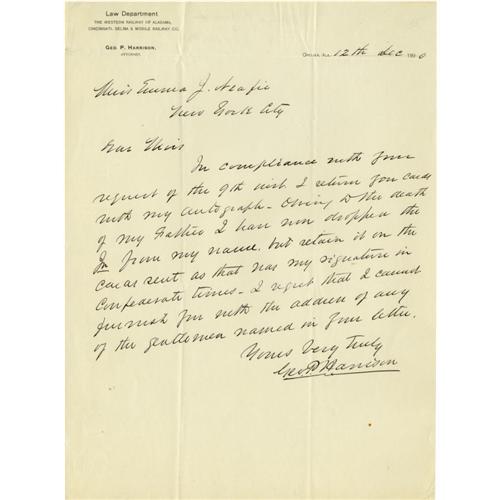 Law Department
THE WESTERN RAILWAY OF ALABAMA,
CINCINNATI, SELMA & MOBILE RAILWAY CO.
GEO P. HARRISON,
ATTORNEY.
OPELIKA, ALA. 12th Dec 190
Miss Emma J.
New York City
Dear Miss
In compliance with your
request of the 9th inst. I return you cards
with my autograph - Owing to the death
of my Father I have now dropped the
Jr from my name, but retain it on the
cards sent, as that was my signature in
Confederate times - I regret that I cannot
furnish you with the address of any
of the gentlemen named in your letter.
Yours Very Truly
Geo P Harrison